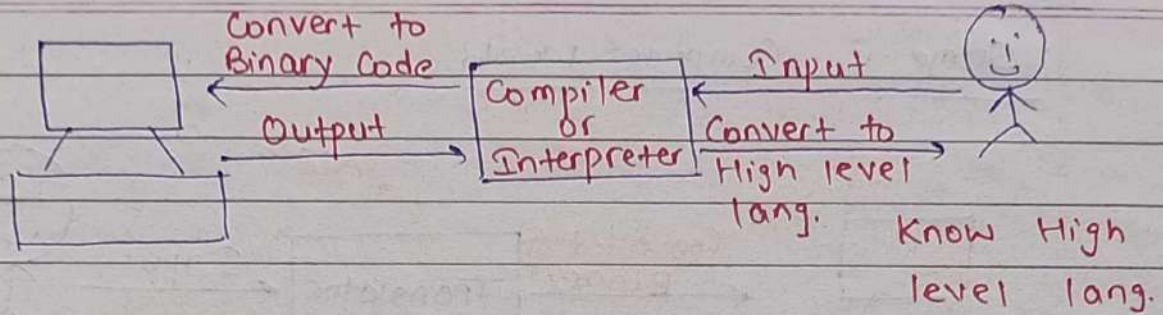 Convert to
Binary Code
Output
Compiler
or
Interpreter
Input
Convert to
High level
lang.
Know High
level lang.